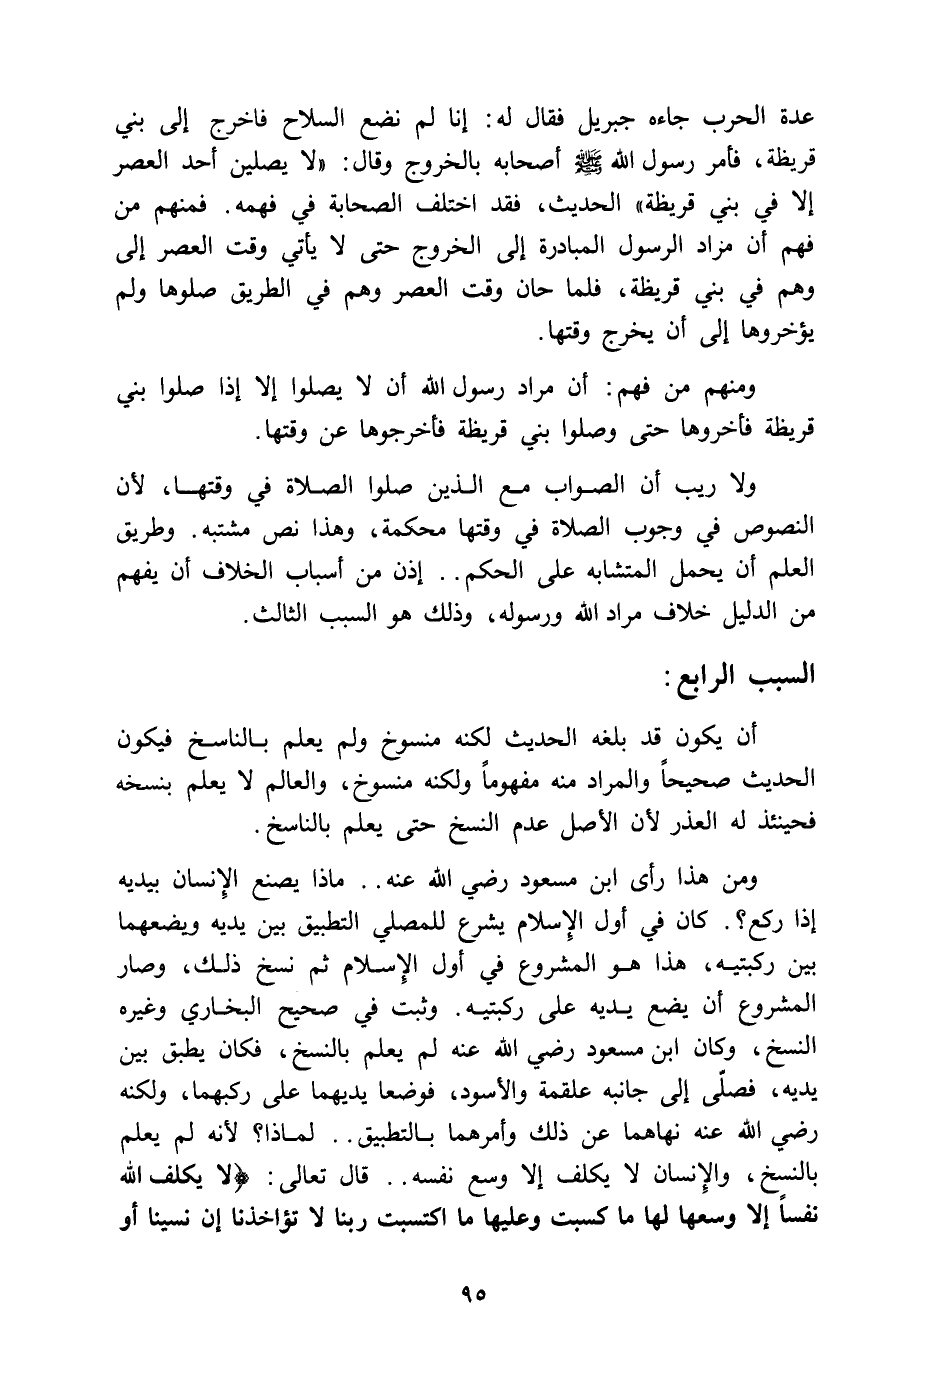 عدة الحرب جاءه جبريل فقال له: إنا لم نضع السلاح فاخرج إلى بني
قريظة، فأمر رسول الله ﷺ أصحابه بالخروج وقال: «لا يصلين أحد العصر
إلا في بني قريظة» الحديث، فقد اختلف الصحابة في فهمه. فمنهم من
فهم أن مراد الرسول المبادرة إلى الخروج حتى لا يأتي وقت العصر إلى
وهم في بني قريظة، فلما حان وقت العصر وهم في الطريق صلوها ولم
يؤخروها إلى أن يخرج وقتها.
ومنهم من فهم: أن مراد رسول الله أن لا يصلوا إلا إذا صلوا بني
قريظة فأخروها حتى وصلوا بني قريظة فأخرجوها عن وقتها.
ولا ريب أن الصواب مع الذين صلوا الصلاة في وقتها، لأن
النصوص في وجوب الصلاة في وقتها محكمة، وهذا نص مشتبه. وطريق
العلم أن يحمل المتشابه على الحكم.. إذن من أسباب الخلاف أن يفهم
من الدليل خلاف مراد الله ورسوله، وذلك هو السبب الثالث.
السبب الرابع:
أن يكون قد بلغه الحديث لكنه منسوخ ولم يعلم بالناسخ فيكون
الحديث صحيحاً والمراد منه مفهوماً ولكنه منسوخ، والعالم لا يعلم بنسخه
فحينئذ له العذر لأن الأصل عدم النسخ حتى يعلم بالناسخ.
ومن هذا رأى ابن مسعود رضي الله عنه.. ماذا يصنع الإنسان بيديه
إذا ركع؟. كان في أول الإسلام يشرع للمصلي التطبيق بين يديه ويضعهما
بين ركبتيه، هذا هو المشروع في أول الإسلام ثم نسخ ذلك، وصار
المشروع أن يضع يديه على ركبتيه. وثبت في صحيح البخاري وغيره
النسخ، وكان ابن مسعود رضي الله عنه لم يعلم بالنسخ، فكان يطبق بين
يديه، فصلّى إلى جانبه علقمة والأسود، فوضعا يديهما على ركبهما، ولكنه
رضي الله عنه نهاهما عن ذلك وأمرهما بالتطبيق.. لماذا؟ لأنه لم يعلم
بالنسخ، والإنسان لا يكلف إلا وسع نفسه.. قال تعالى: ﴿لا يكلف الله
نفساً إلا وسعها لها ما كسبت وعليها ما اكتسبت ربنا لا تؤاخذنا إن نسينا أو
٩٥